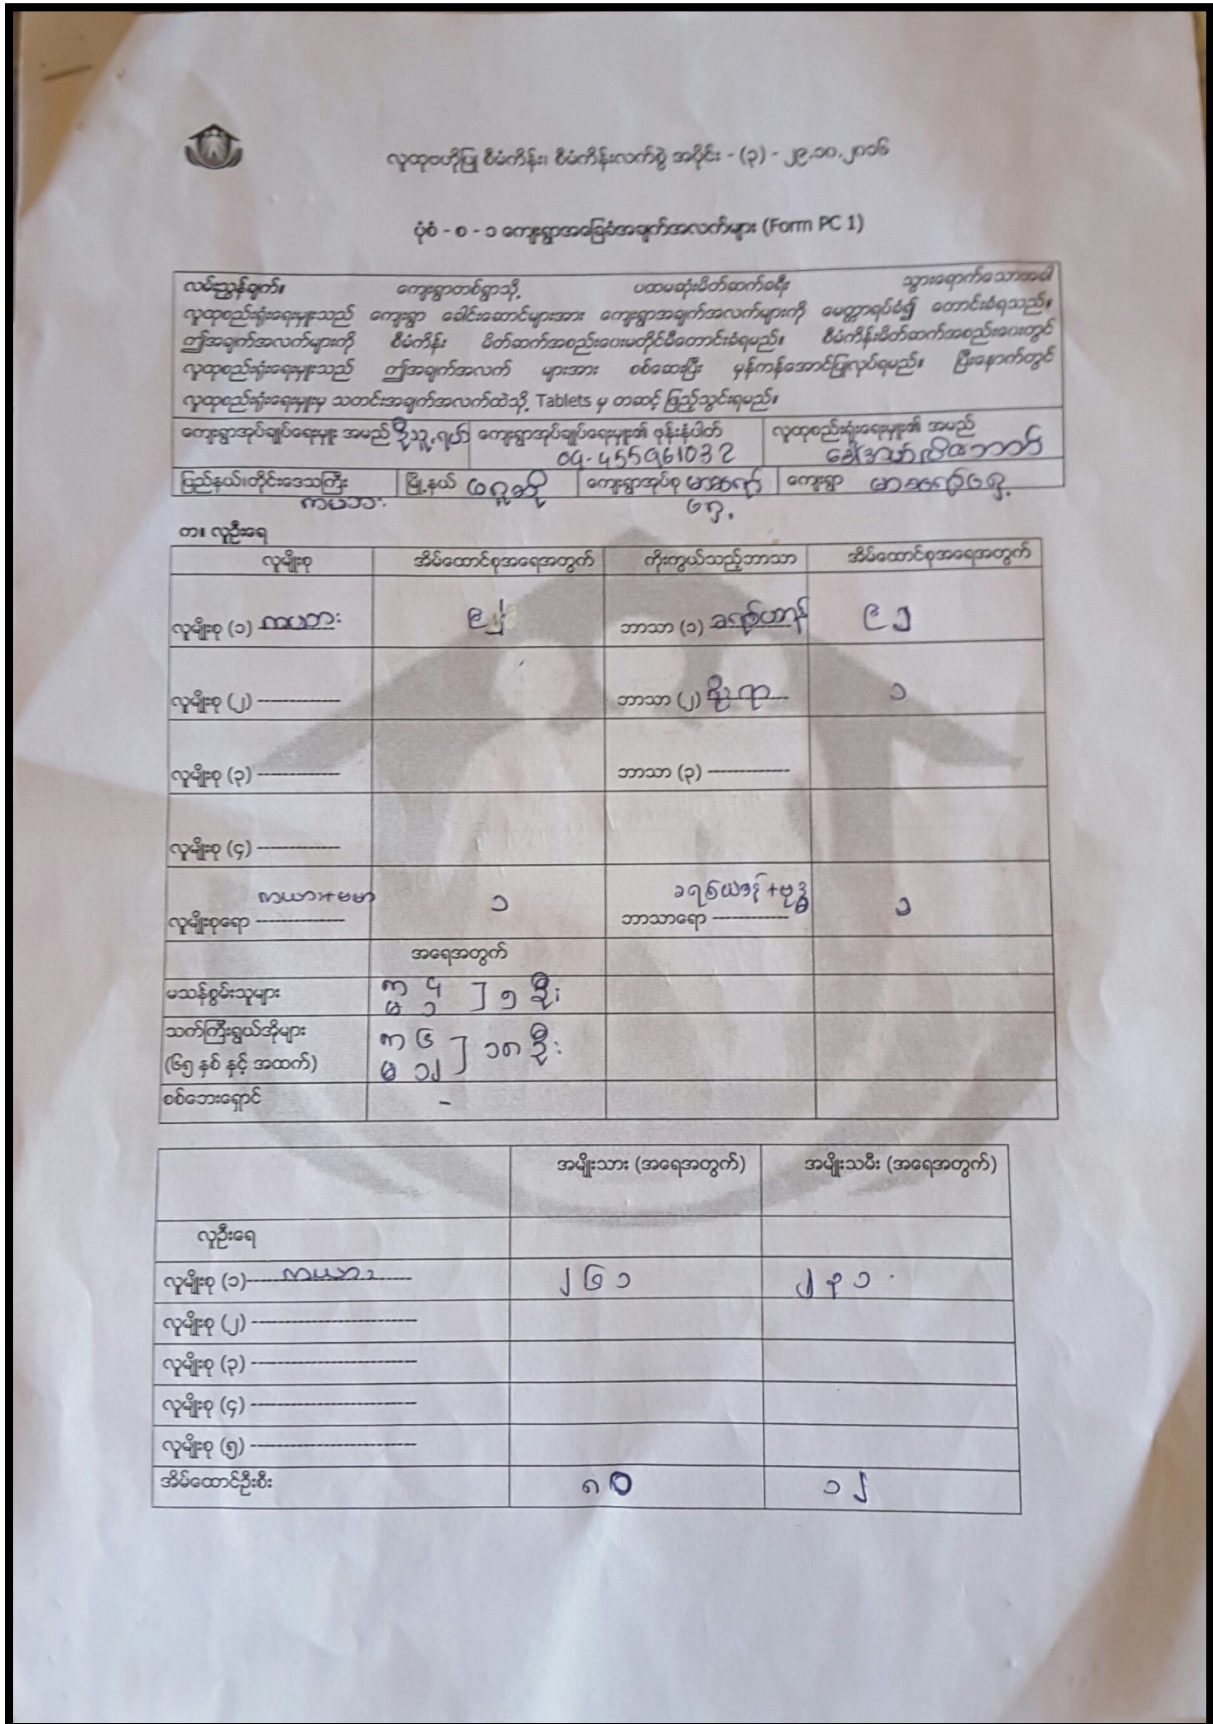 လူထုဗဟိုပြု စီမံကိန်း၊ စီမံကိန်းလက်စွဲ အပိုင်း - (၃) - ၂၉.၁၀.၂၀၁၆
ပုံစံ - စ - ၁ ကျေးရွာအခြေခံအချက်အလက်များ (Form PC 1)
လမ်းညွှန်ချက်။ ကျေးရွာတစ်ရွာသို့ ပထမဆုံးမိတ်ဆက်ခရီး သွားရောက်သောအခါ
လူထုစည်းရုံးရေးမှူးသည် ကျေးရွာ ခေါင်းဆောင်များအား ကျေးရွာအချက်အလက်များကို မေတ္တာရပ်ခံ၍ တောင်းခံရသည်။
ဤအချက်အလက်များကို စီမံကိန်း မိတ်ဆက်အစည်းပေးမတိုင်မီတောင်းခံရမည်။ စီမံကိန်းမိတ်ဆက်အစည်းပေးတွင်
လူထုစည်းရုံးရေးမှူးသည် ဤအချက်အလက် များအား စစ်ဆေးပြီး မှန်ကန်အောင်ပြုလုပ်ရမည်။ ပြီးနောက်တွင်
လူထုစည်းရုံးရေးမှူးမှ သတင်းအချက်အလက်ထဲသို့ Tablets မှ တဆင့် ဖြည့်သွင်းရမည်။
ကျေးရွာအုပ်ချုပ်ရေးမှူး အမည် ဦးသူ့ရယ် ကျေးရွာအုပ်ချုပ်ရေးမှူး၏ ဖုန်းနံပါတ် လူထုစည်းရုံးရေးမှူး၏ အမည်
09-455961032
ပြည်နယ်၊တိုင်းဒေသကြီး မြို့နယ် ဖရူဆို ကျေးရွာအုပ်စု ကျေးရွာ
ကယား
က။ လူဦးရေ
လူမျိုးစု အိမ်ထောင်စုအရေအတွက် ကိုးကွယ်သည့်ဘာသာ အိမ်ထောင်စုအရေအတွက်
လူမျိုးစု (၁) ကယား ၉၂ ဘာသာ (၁) ခရစ်ယာန် ၉၁
လူမျိုးစု (၂) ------------- ဘာသာ (၂) ရိုးရာ ၁
လူမျိုးစု (၃) ------------- ဘာသာ (၃) -------------
လူမျိုးစု (၄) -------------
လူမျိုးစုရော ကယား+ဗမာ ၁ ဘာသာရော ခရစ်ယာန်+ဗုဒ္ဓ ၁
အရေအတွက်
မသန်စွမ်းသူများ ကျ ၄ မ ၁ ] ၅ ဦး
သက်ကြီးရွယ်အိုများ
(၆၅ နှစ် နှင့် အထက်) ကျ ၆ မ ၁၂ ] ၁၈ ဦး
စစ်ဘေးရှောင် -
အမျိုးသား (အရေအတွက်) အမျိုးသမီး (အရေအတွက်)
လူဦးရေ
လူမျိုးစု (၁) ကယား ၂၆၁ ၂၃၁
လူမျိုးစု (၂) -------------------------
လူမျိုးစု (၃) -------------------------
လူမျိုးစု (၄) -------------------------
လူမျိုးစု (၅) -------------------------
အိမ်ထောင်ဦးစီး ၈၀ ၁၂